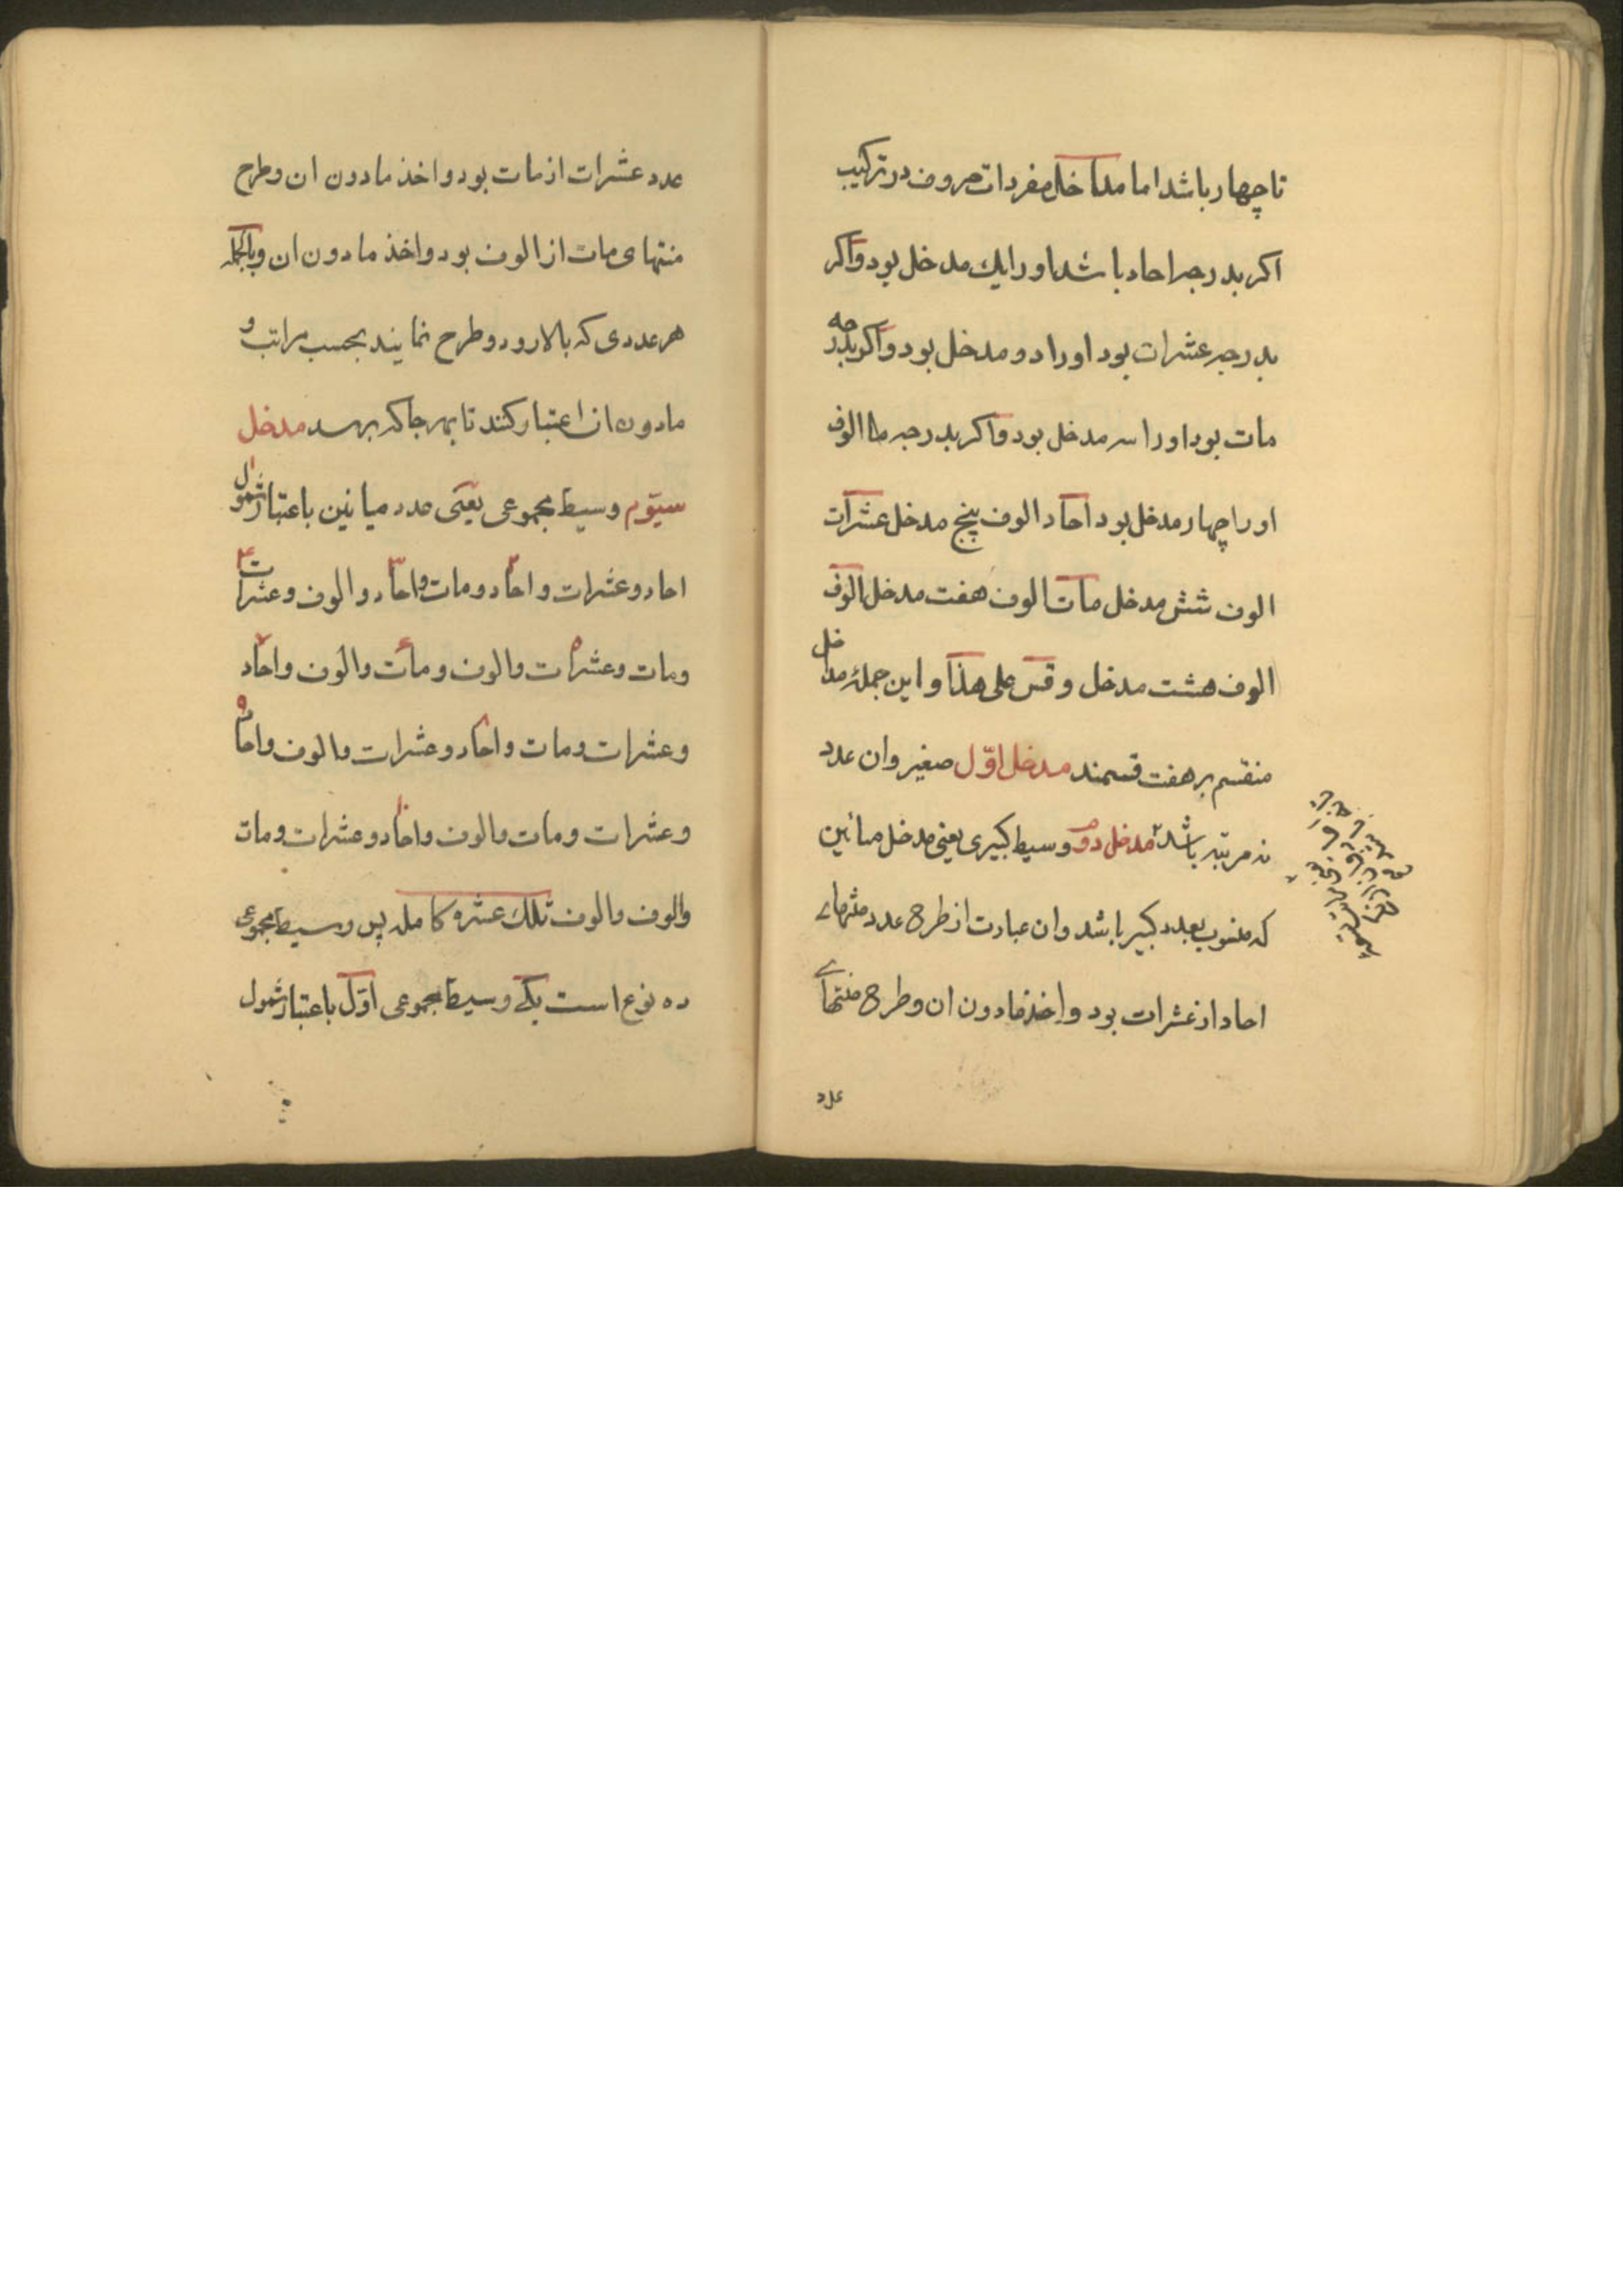 تا چهار باشد اما مداخل مفردات حروف در ترکیب
اکر بدرجه احاد باشد او را یك مدخل بود و اکر
بدرجه عشرات بود او را دو مدخل بود و اکر بدرجه
مات بود او را سه مدخل بود و اکر بدرجه الوف
او را چهار مدخل بود احاد الوف پنج مدخل عشرات
الوف شش مدخل مات الوف هفت مدخل الوف
الوف هشت مدخل و قس علی هذا و این جملهٔ مداخل
منقسم بر هفت قسمند مدخل اوّل صغیر و ان عدد
نه مرتبه باشد مدخل دوم وسیط کبیری یعنی مدخل میانین
که منسوب بعدد کبیر باشد و ان عبارت از طرح عدد منتهای
احاد از عشرات بود و اخذ مادون ان و طرح منتهای
عدد
عدد عشرات از مات بود و اخذ مادون ان و طرح
منتهای مات از الوف بود و اخذ مادون ان و بالجمله
هر عددی که بالا رود و طرح نمایند بحسب مراتب و
مادون ان اعتبار کنند تا بهر جا که برسد مدخل
سیّوم وسیط مجموعی یعنی عدد میانین باعتبار شمول
احاد و عشرات ۲ و احاد و مات ۳ و احاد و الوف ۴ و عشرات
و مات ۵ و عشرات و الوف ۶ و مات و الوف ۷ و احاد
و عشرات و مات ۸ و احاد و عشرات و الوف ۹ و احاد
و عشرات و مات و الوف ۱۰ و احاد و عشرات و مات
و الوف و الوف تلك عشره کامله پس وسیط مجموعی
ده نوع است یکی وسیط مجموعی اوّل باعتبار شمول